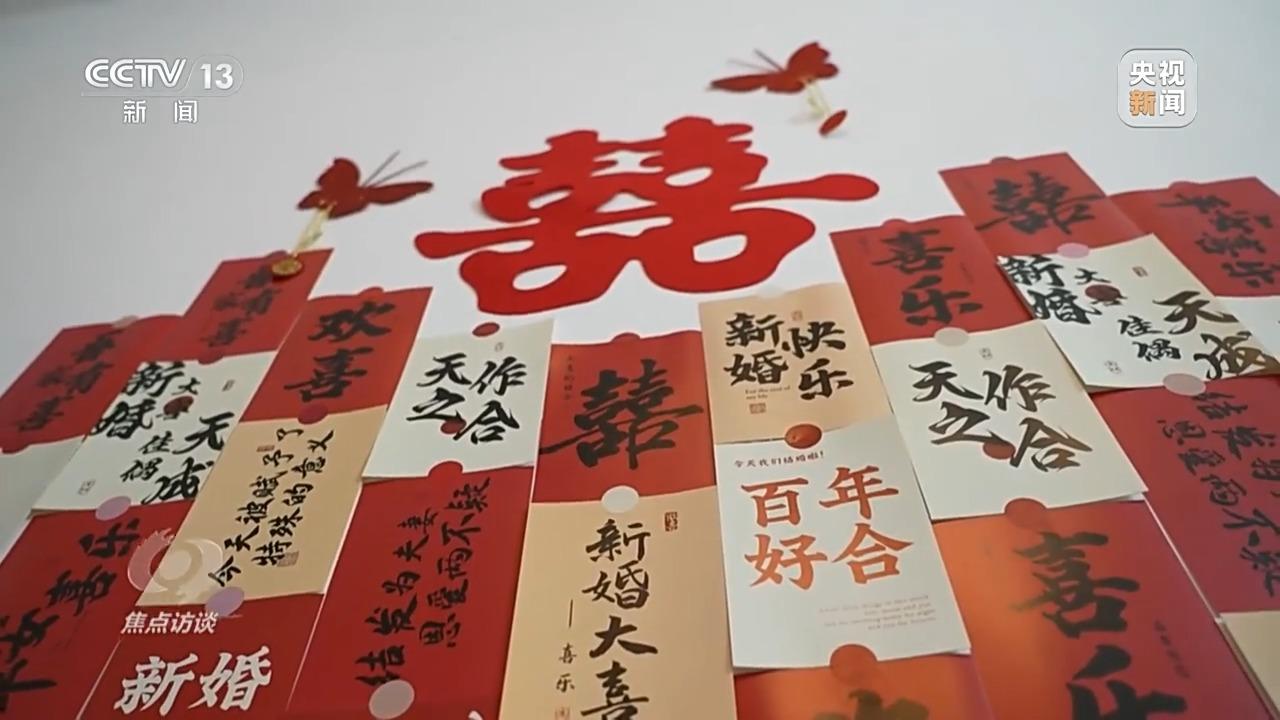 CCTV 13
新闻
央视
新闻
囍
囍
喜乐
欢喜
新婚快乐
新婚大喜
佳偶天成
新婚大喜
佳偶天成
天作之合
囍
天作之合
今天我们结婚啦!
百年好合
今天被赋予了
特殊的意义
结发为夫妻
恩爱两不疑
结发为夫妻
恩爱两不疑
新婚大喜
喜乐
平安喜乐
喜乐
焦点访谈
新婚